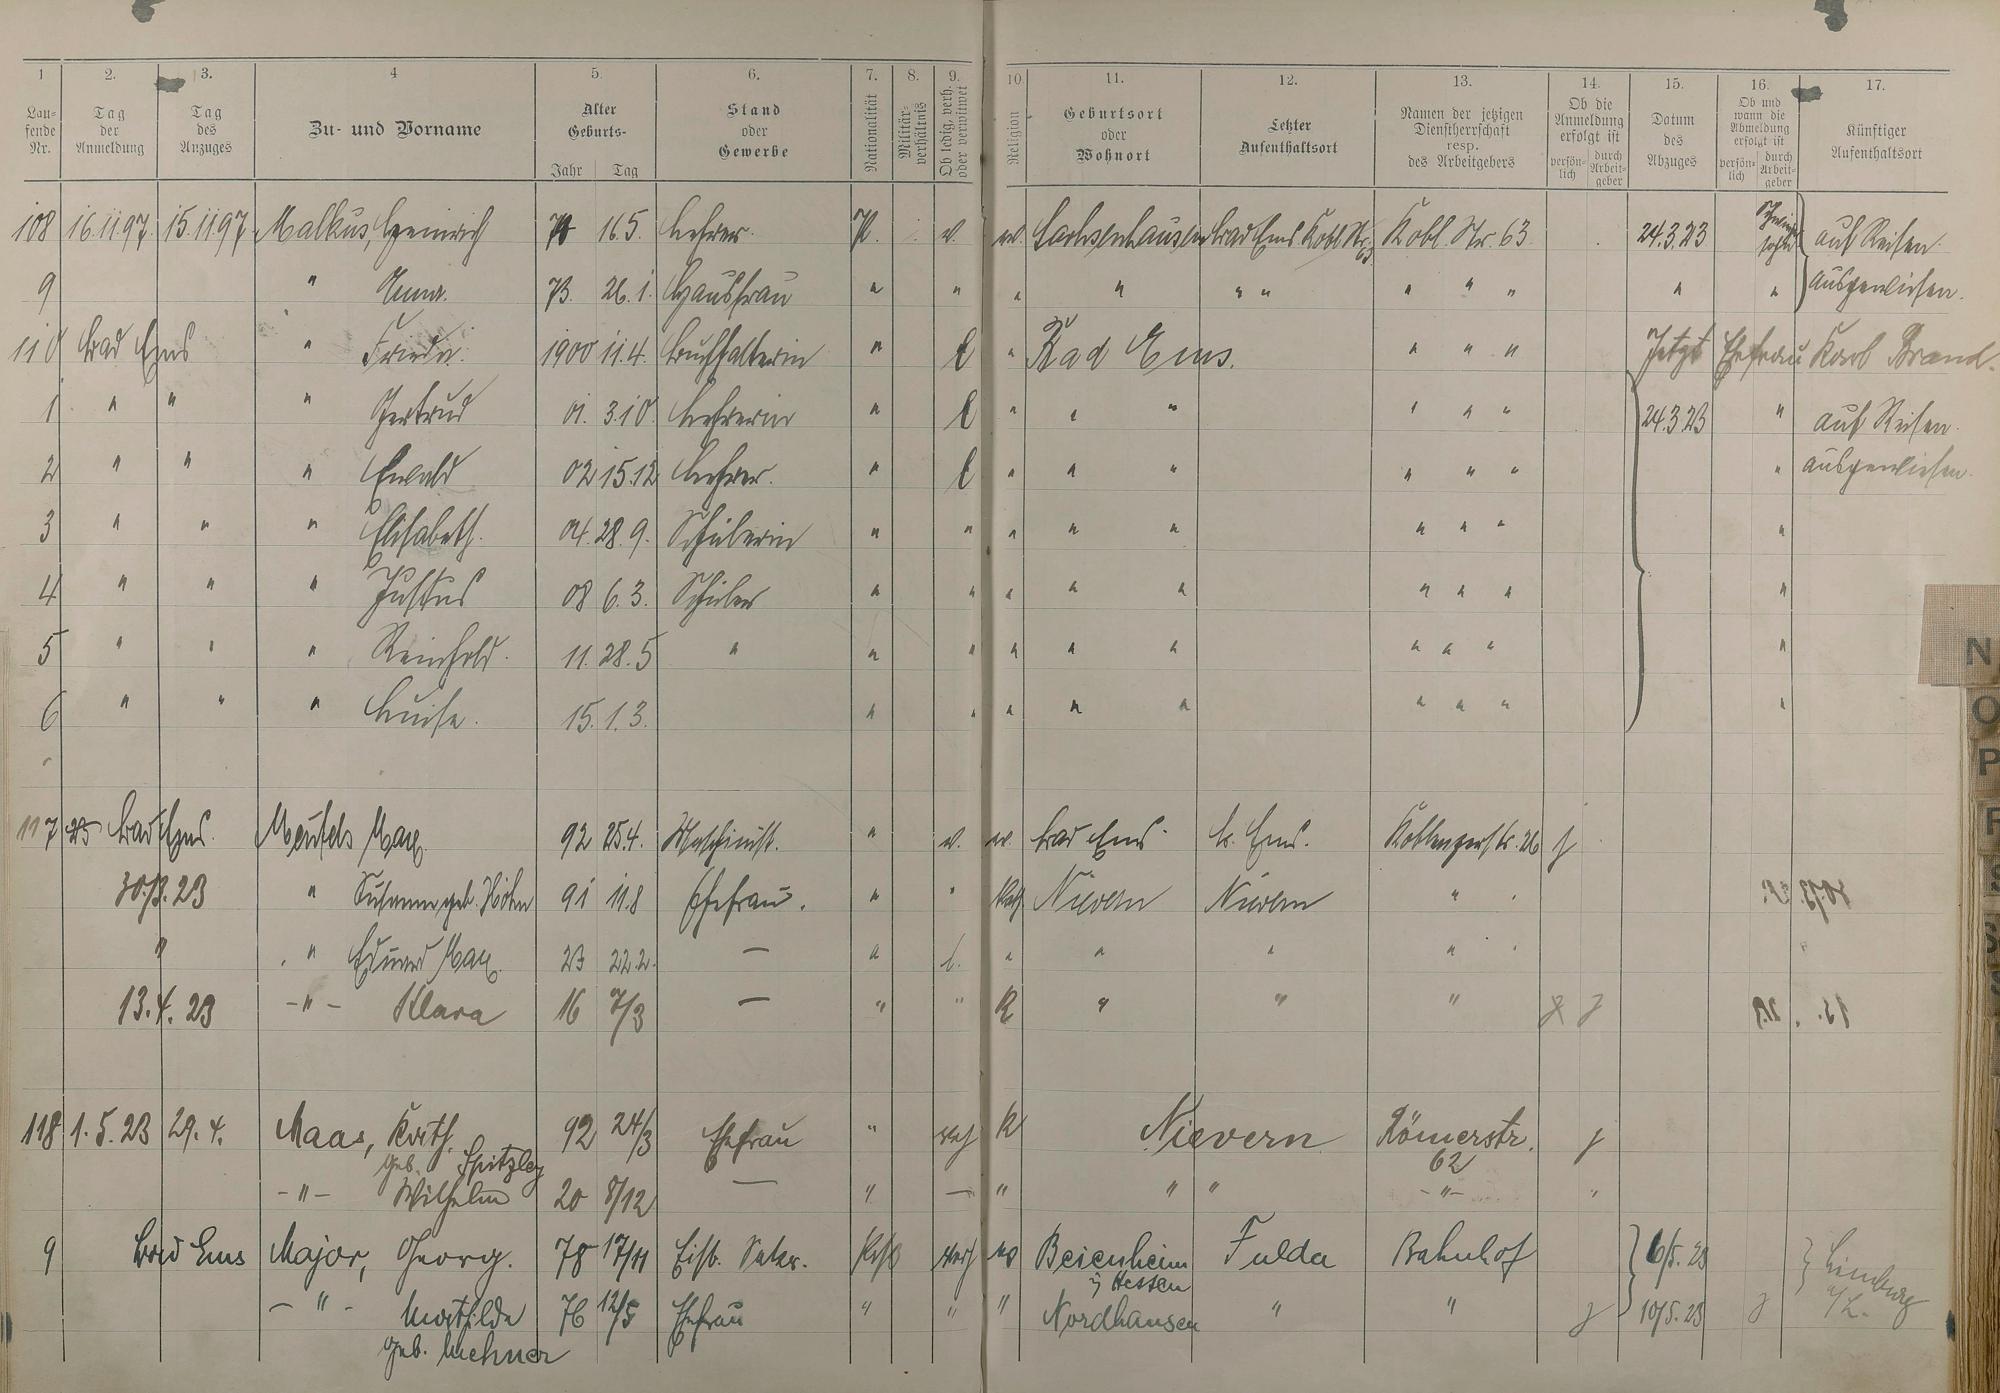 1 2. 3. 4 5. 6. 7. 8. 9. 10. 11. 12. 13. 14. 15. 16. 17.
Lau-
fende
Nr.
Tag
der
Anmeldung
Tag
des
Anzuges
Zu- und Vorname
Alter
Geburts-
Jahr Tag
Stand
oder
Gewerbe
Nationalität
Militär-
verhältnis
Ob ledig, verh.
oder verwitwet
Religion
Geburtsort
oder
Wohnort
Letzter
Aufenthaltsort
Namen der jetzigen
Dienstherrschaft
resp.
des Arbeitgebers
Ob die
Anmeldung
erfolgt ist
persön-
lich
durch
Arbeit-
geber
Datum
des
Abzuges
Ob und
wann die
Abmeldung
erfolgt ist
persön-
lich
durch
Arbeit-
geber
Künftiger
Aufenthaltsort
108 16.11.97. 15.11.97 Malkus, Heinrich 16.5. Lehrer. P. v. ev. Sachsenhausen Bad Ems Kobl. Str. 63 Kobl. Str. 63 24.3.23 auf Reisen.
9 " Emma. 73. 26.1. Hausfrau " " " " " " " " " " " ausgewiesen.
110 Bad Ems " Frieda. 1900 11.4. Buchhalterin " l " Bad Ems. " " " Jetzt Ehefrau Karl Brand.
1 " " " Gertrud 01. 3.10. Lehrerin " l " " " " " " 24.3.23 " auf Reisen.
2 " " " Ewald 02 15.12 Lehrer. " l " " " " " " " ausgewiesen.
3 " " " Elisabeth. 04. 28.9. Schülerin " " " " " " " " "
4 " " " Justus 08 6.3. Schüler " " " " " " " " "
5 " " " Reinhold. 11. 28.5 " " " " " " " " " "
6 " " " Luise. 15. 1.3. " " " " " " " " "
117 Bad Ems. Meusels Max 92 25.4. Maschinist. " v. ev. Bad Ems. B. Ems. Koblenzerstr. 26 j
23 " Susanna geb. 91 11.8 Ehefrau. " " Kath Nievern Nievern "
" " Eduard Max. 23 22.2. — " l. " " " "
13.4.23 -"- Klara 16 7/3 — " " K " " " j
118 1.5.23 29.4. Maas, Kath. 92 24/3 Ehefrau " verh K Nievern Römerstr. j
geb. Spitzley 62
-"- Wilhelm 20 8/12 — " — " " " -"- "
9 Bad Ems Major, Georg. 78 17/11 Eisb. Sekr. verh ev Beienheim Fulda Bahnhof 6/5.23 Limburg
i/ Hessen a/L.
-"- Mathilde 76 12/5 Ehefrau " " " Nordhausen " " j 10/5.23 j
geb. Wechner
N
O
P
R
S